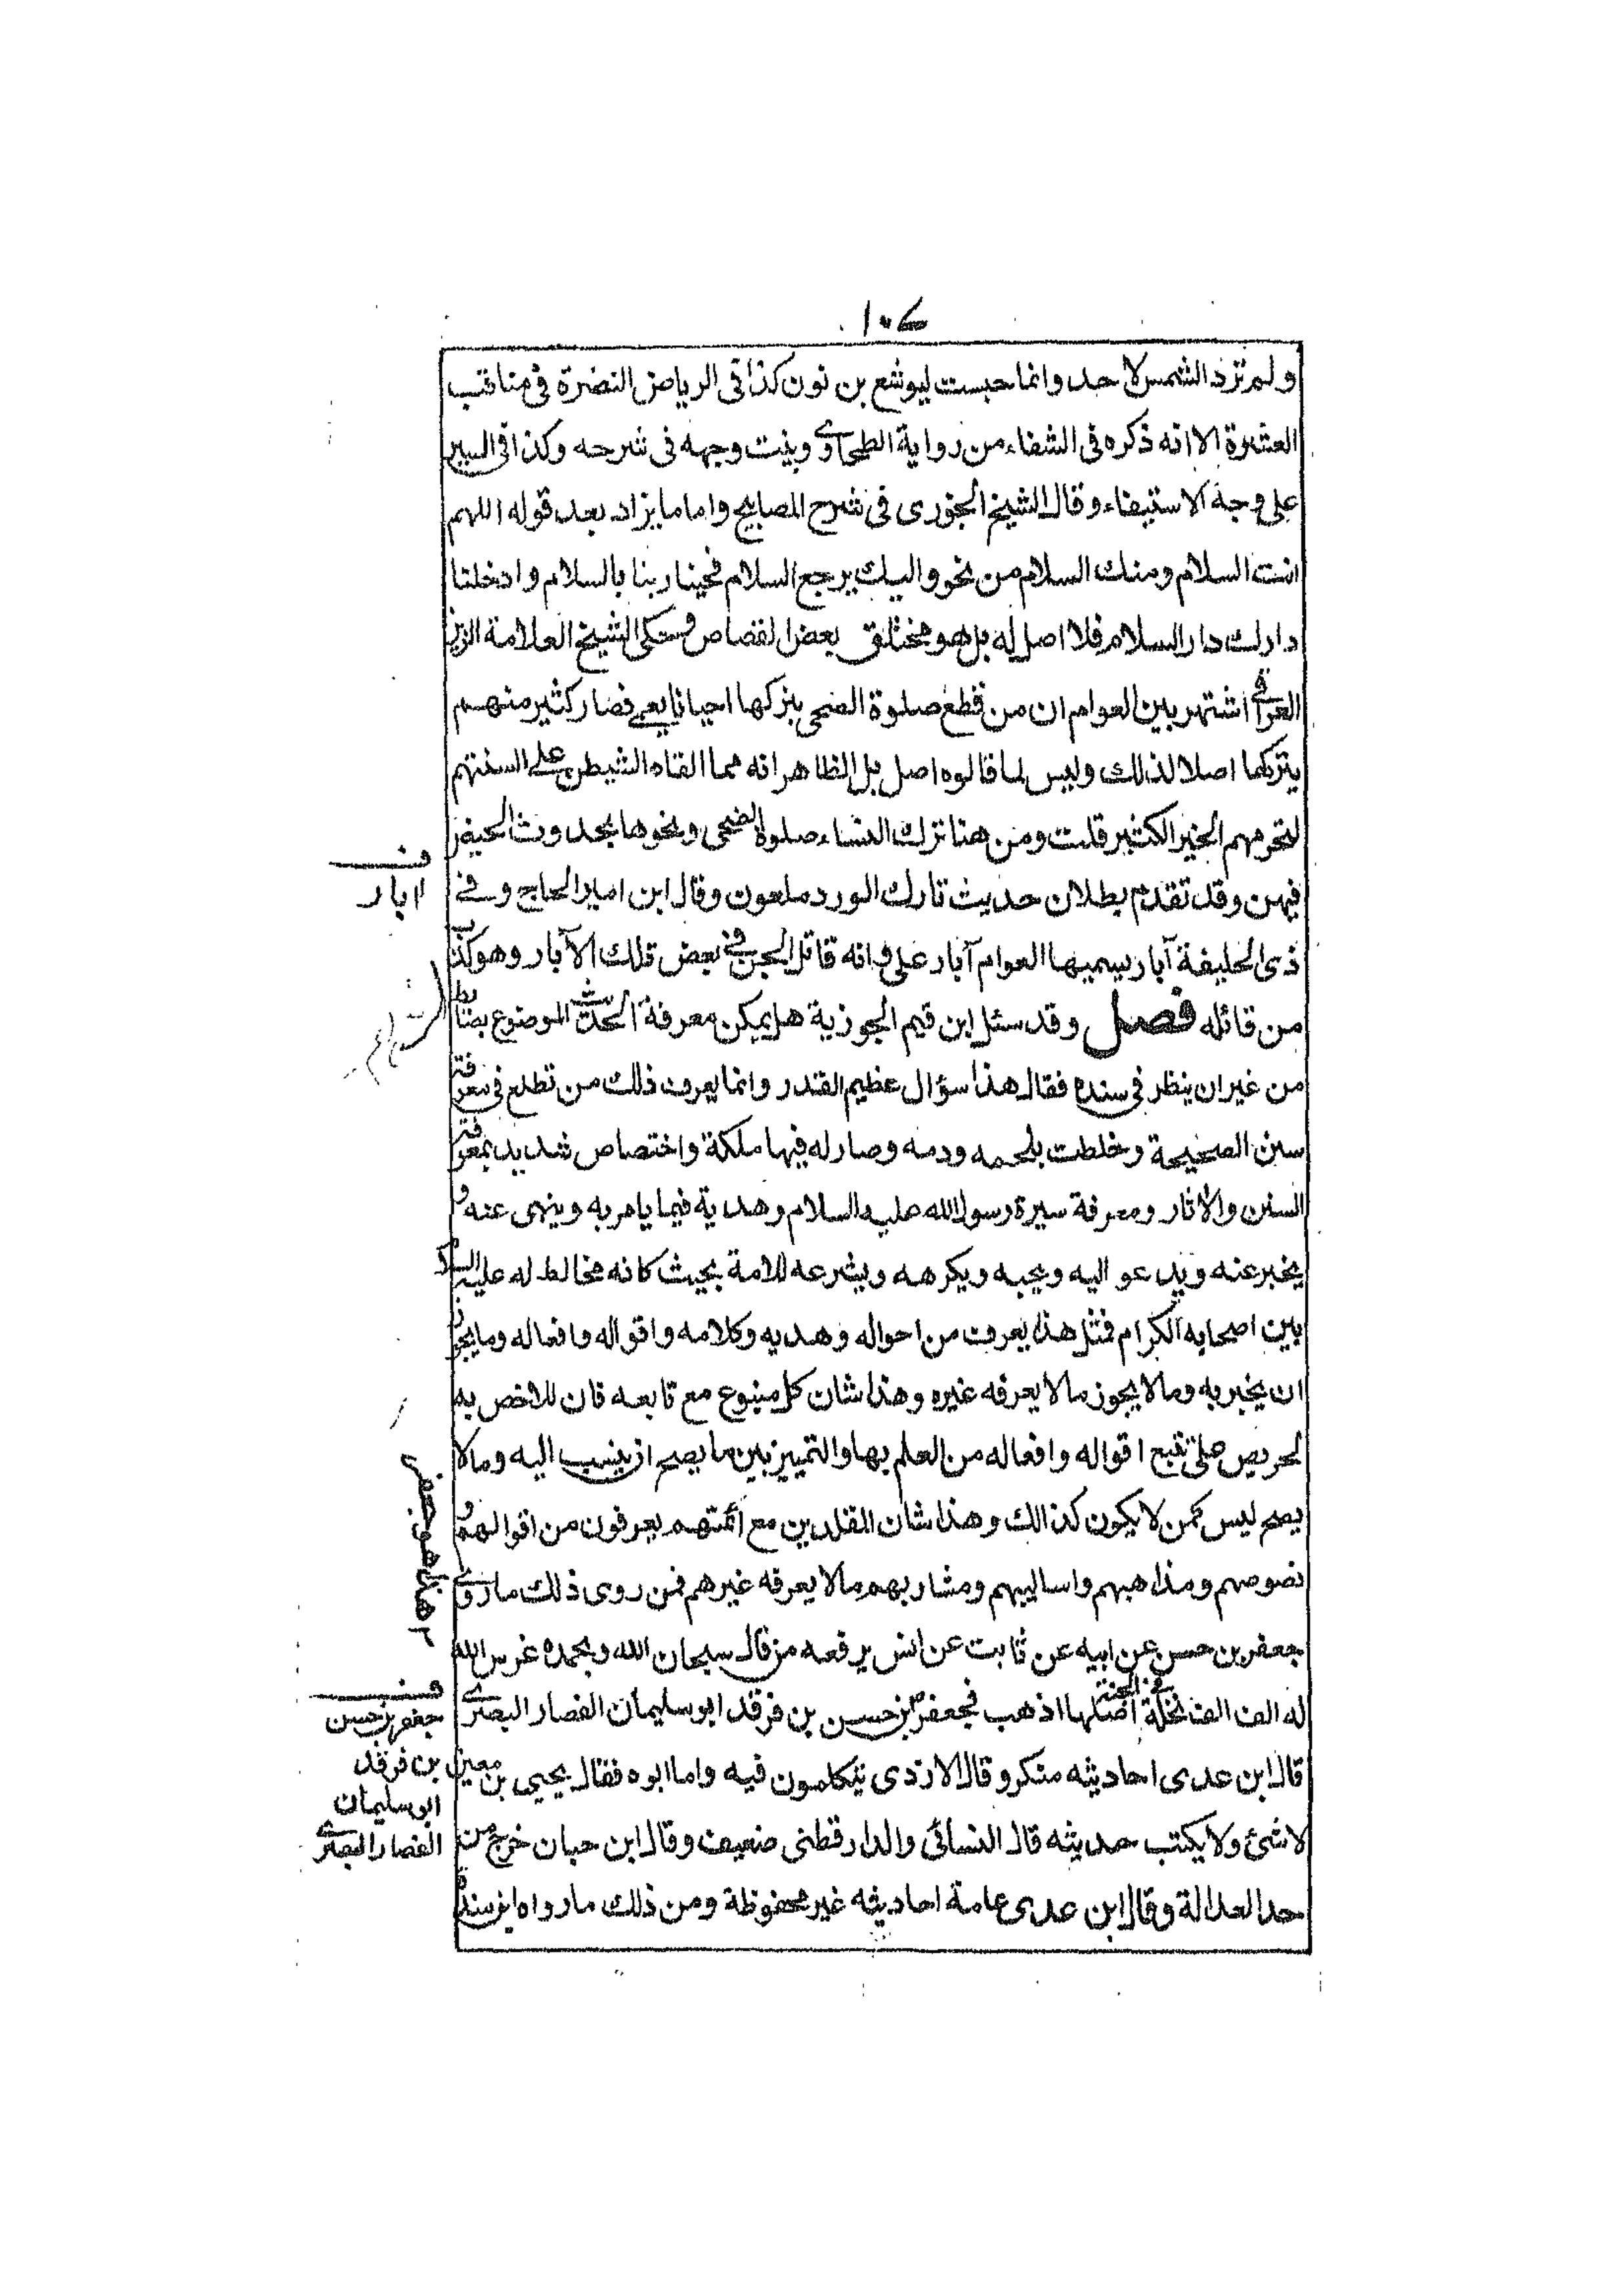 ١٠٧
ولم ترد الشمس لاحد وانما حبست ليوشع بن نون كذا فى الرياض النضرة فى مناقب
العشرة الا انه ذكره فى الشفاء من رواية الطحاوى وبينت وجهه فى شرحه وكذا فى السير
على وجه الاستيفاء وقال الشيخ الجزرى فى شرح المصابيح واما ما يزاد بعد قوله اللهم
انت السلام ومنك السلام من نحو واليك يرجع السلام فحينا ربنا بالسلام وادخلنا
دارك دار السلام فلا اصل له بل هو مختلق بعض القصاص وحكى الشيخ العلامة الزين
العراقى اشتهر بين العوام ان من قطع صلوة الضحى بتركها احيانا يعمى فصار كثير منهم
يتركها اصلا لذلك وليس لما قالوه اصل بل الظاهر انه مما القاه الشيطن على السنتهم
لتحرمهم الخير الكثير قلت ومن هنا ترك النساء صلوة الضحى ونحوها بحدوث الحيض
فيهن وقد تقدم بطلان حديث تارك الورد ملعون وقال ابن امير الحاج وفى
ذى الحليفة آبار يسميها العوام آبار على وانه قاتل الجن فى بعض تلك الآبار وهو كذب
من قائله فصل وقد سئل ابن قيم الجوزية هل يمكن معرفة الحديث الموضوع بضابط
من غير ان ينظر فى سنده فقال هذا سؤال عظيم القدر وانما يعرف ذلك من تطلع فى معرفة
سنن الصحيحة وخلطت بلحمه ودمه وصار له فيها ملكة واختصاص شديد بمعرفة
السنن والاثار ومعرفة سيرة رسول الله عليه السلام وهدية فيما يامر به وينهى عنه و
يخبر عنه ويدعو اليه ويحبه ويكرهه ويشرعه للامة بحيث كانه مخالط له عليه السلام
بين اصحابه الكرام فمثل هذا يعرف من احواله وهديه وكلامه واقواله وافعاله وما يجوز
ان يخبر به وما لا يجوز ما لا يعرفه غيره وهذا شان كل متبوع مع تابعه فان للاخص به
لحريص على تتبع اقواله وافعاله من العلم بها والتمييز بين ما يصح ان ينسب اليه وما لا
يصح ليس كمن لا يكون كذالك وهذا شان المقلدين مع ائمتهم يعرفون من اقوالهم و
نصوصهم ومذاهبهم واساليبهم ومشاربهم ما لا يعرفه غيرهم فمن روى ذلك ما روى
جعفر بن حسن عن ابيه عن ثابت عن انس يرفعه من قال سبحان الله وبحمده غرس الله
له الف الف نخلة فى الجنة اصلها اذهب فجعفر بن حسن بن فرقد ابو سليمان القصار البصرى
قال ابن عدى احاديثه منكر وقال الازدى يتكلمون فيه واما ابوه فقال يحيى بن معين
لا شئ ولا يكتب حديثه قال النسائى والدارقطنى ضعيف وقال ابن حبان خرج من
حد العدالة وقال ابن عدى عامة احاديثه غير محفوظة ومن ذلك ما رواه ابن سنده
ف
ابار
ف
جعفر بن حسن
بن فرقد
ابو سليمان
القصار البصرى